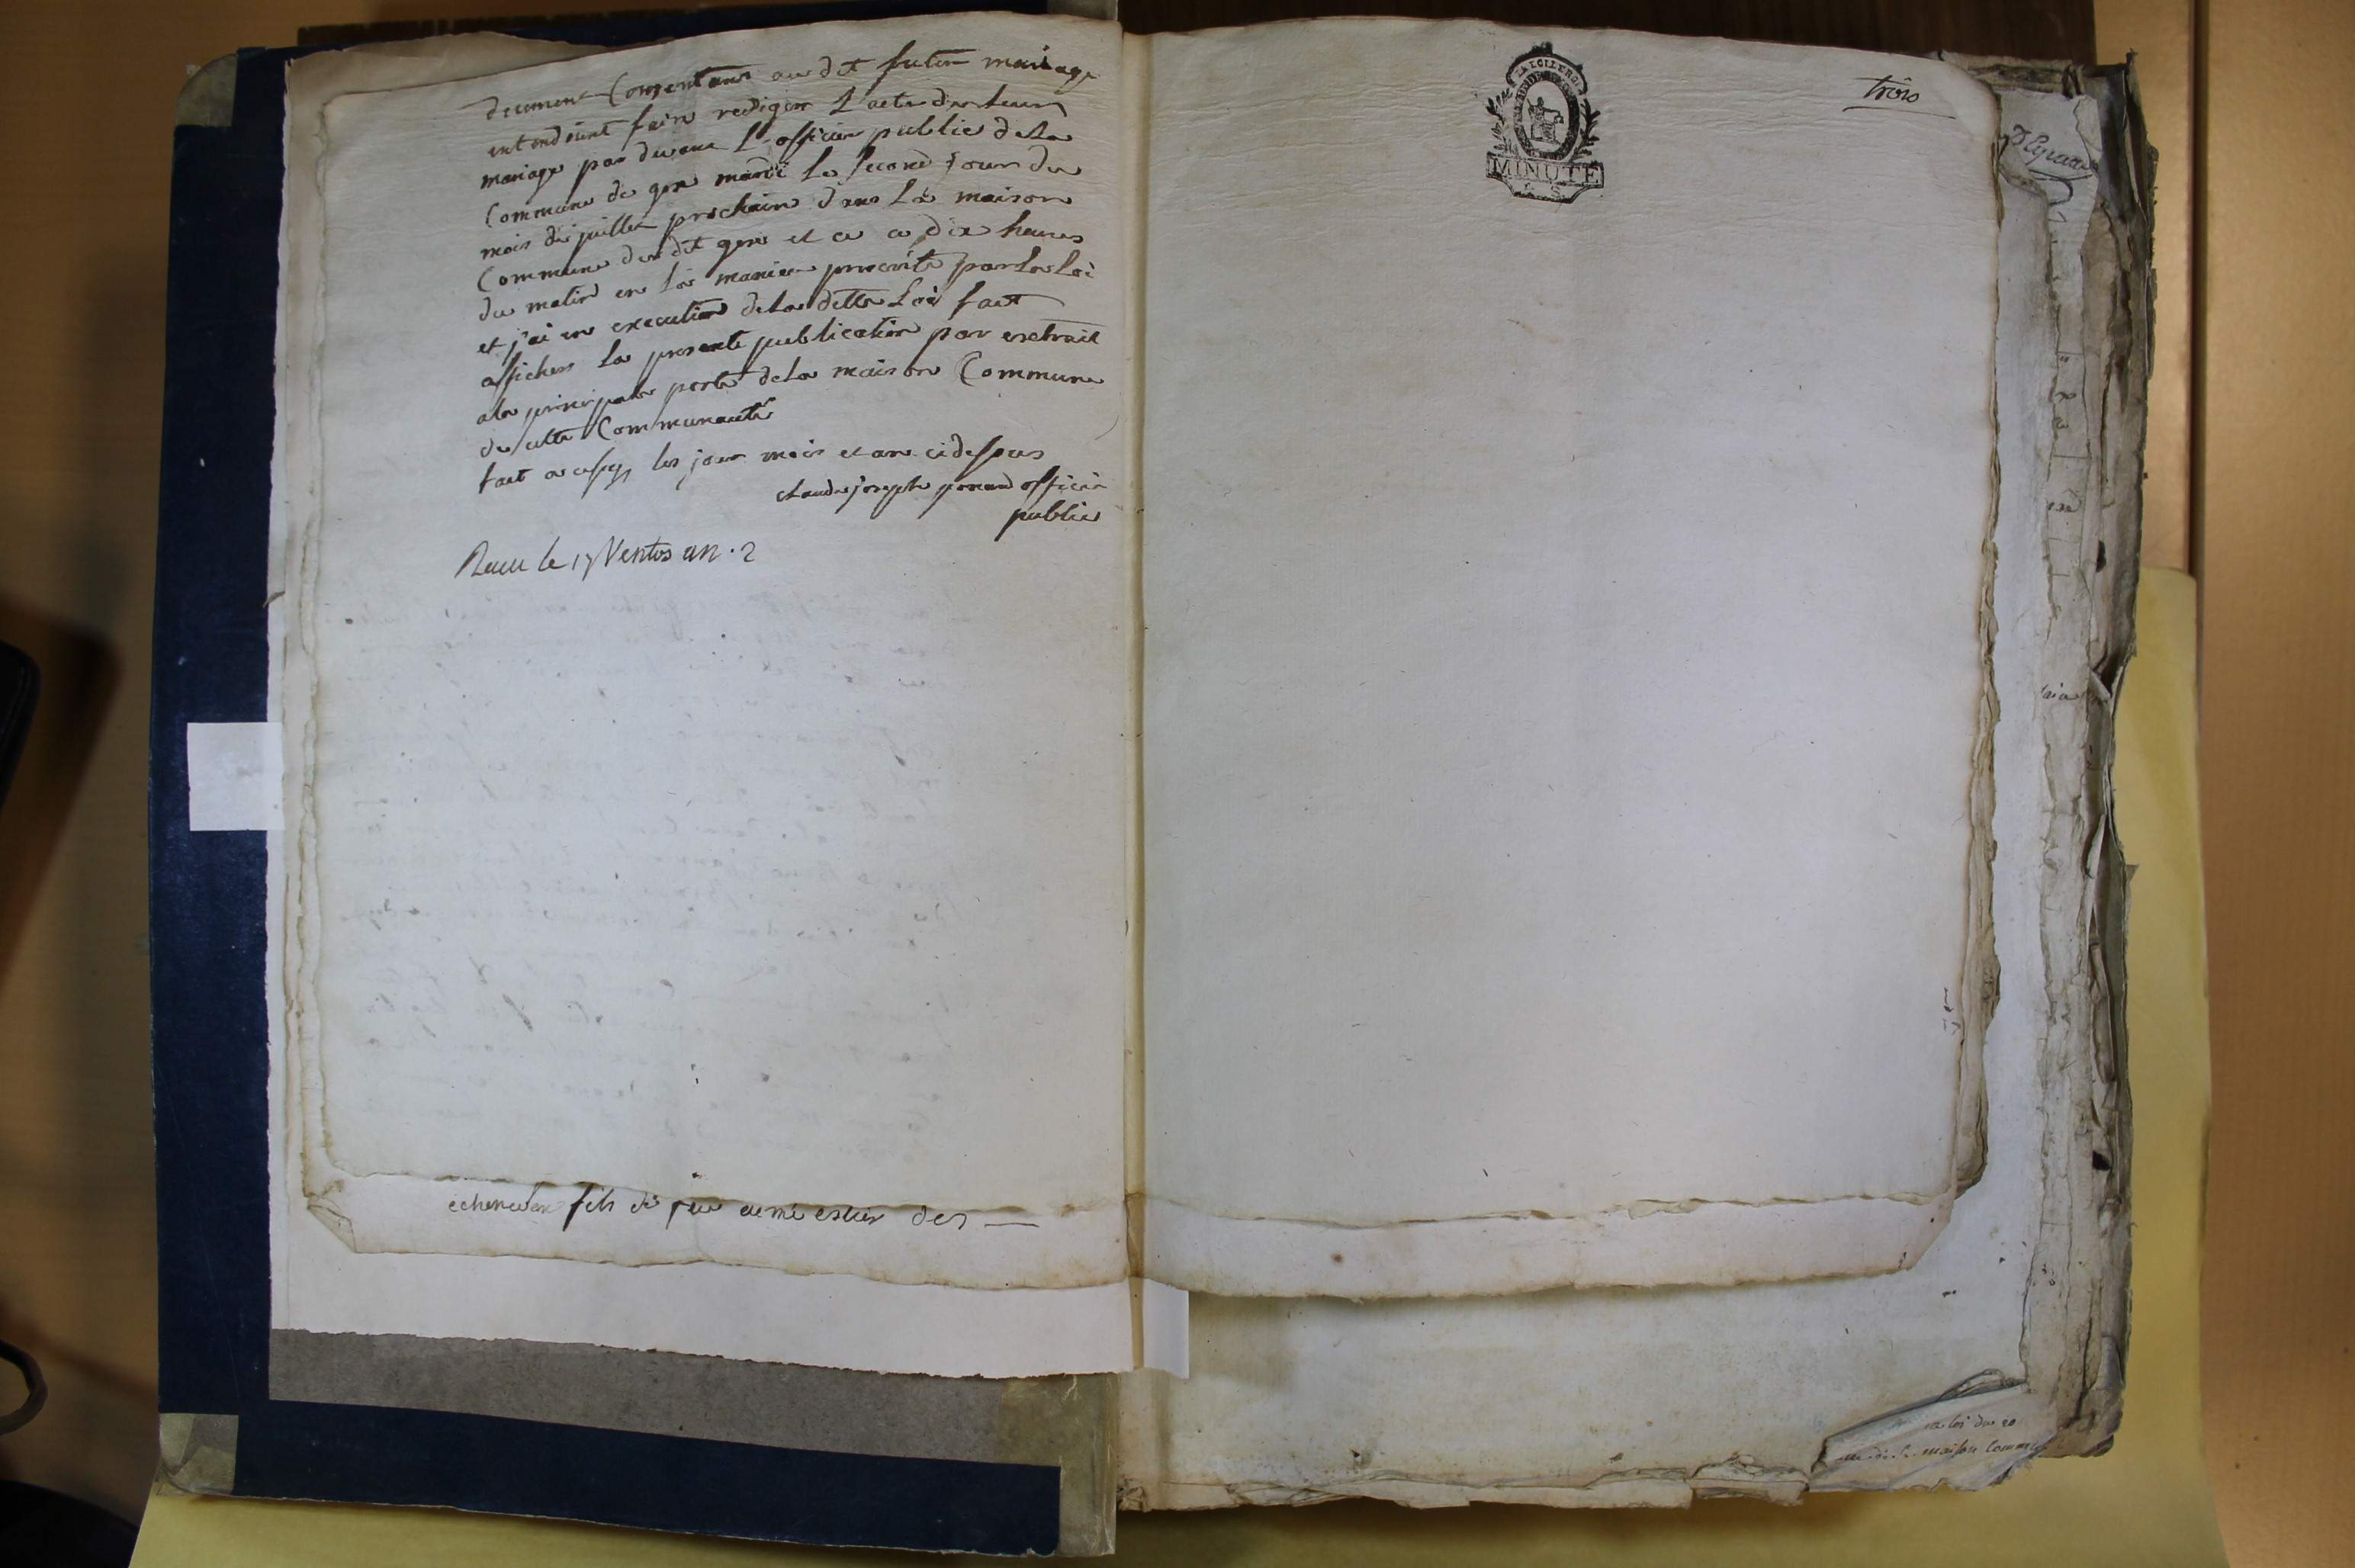 decement Consentant au dit futur mariage
entendoint faire rediger l'acte du leur
mariage par devant l'officier public de la
Commune de gex mardi le second jour du
mois de juillet prochain dans la maison
Commune du dit gex et ce a dix heures
du matin en la maniere prescrite par la loi
et j'ai en execution de la ditte Loi fait
afficher la presente publication par extrait
a la principale porte de la maison Commune
de cette Communauté
fait a cessy les jour mois et an cidessus
claude joseph officier
public
le 17 Ventos an . 2
fils de feu aimé des
trois
MINUTE
la loi du 20
maison Commu